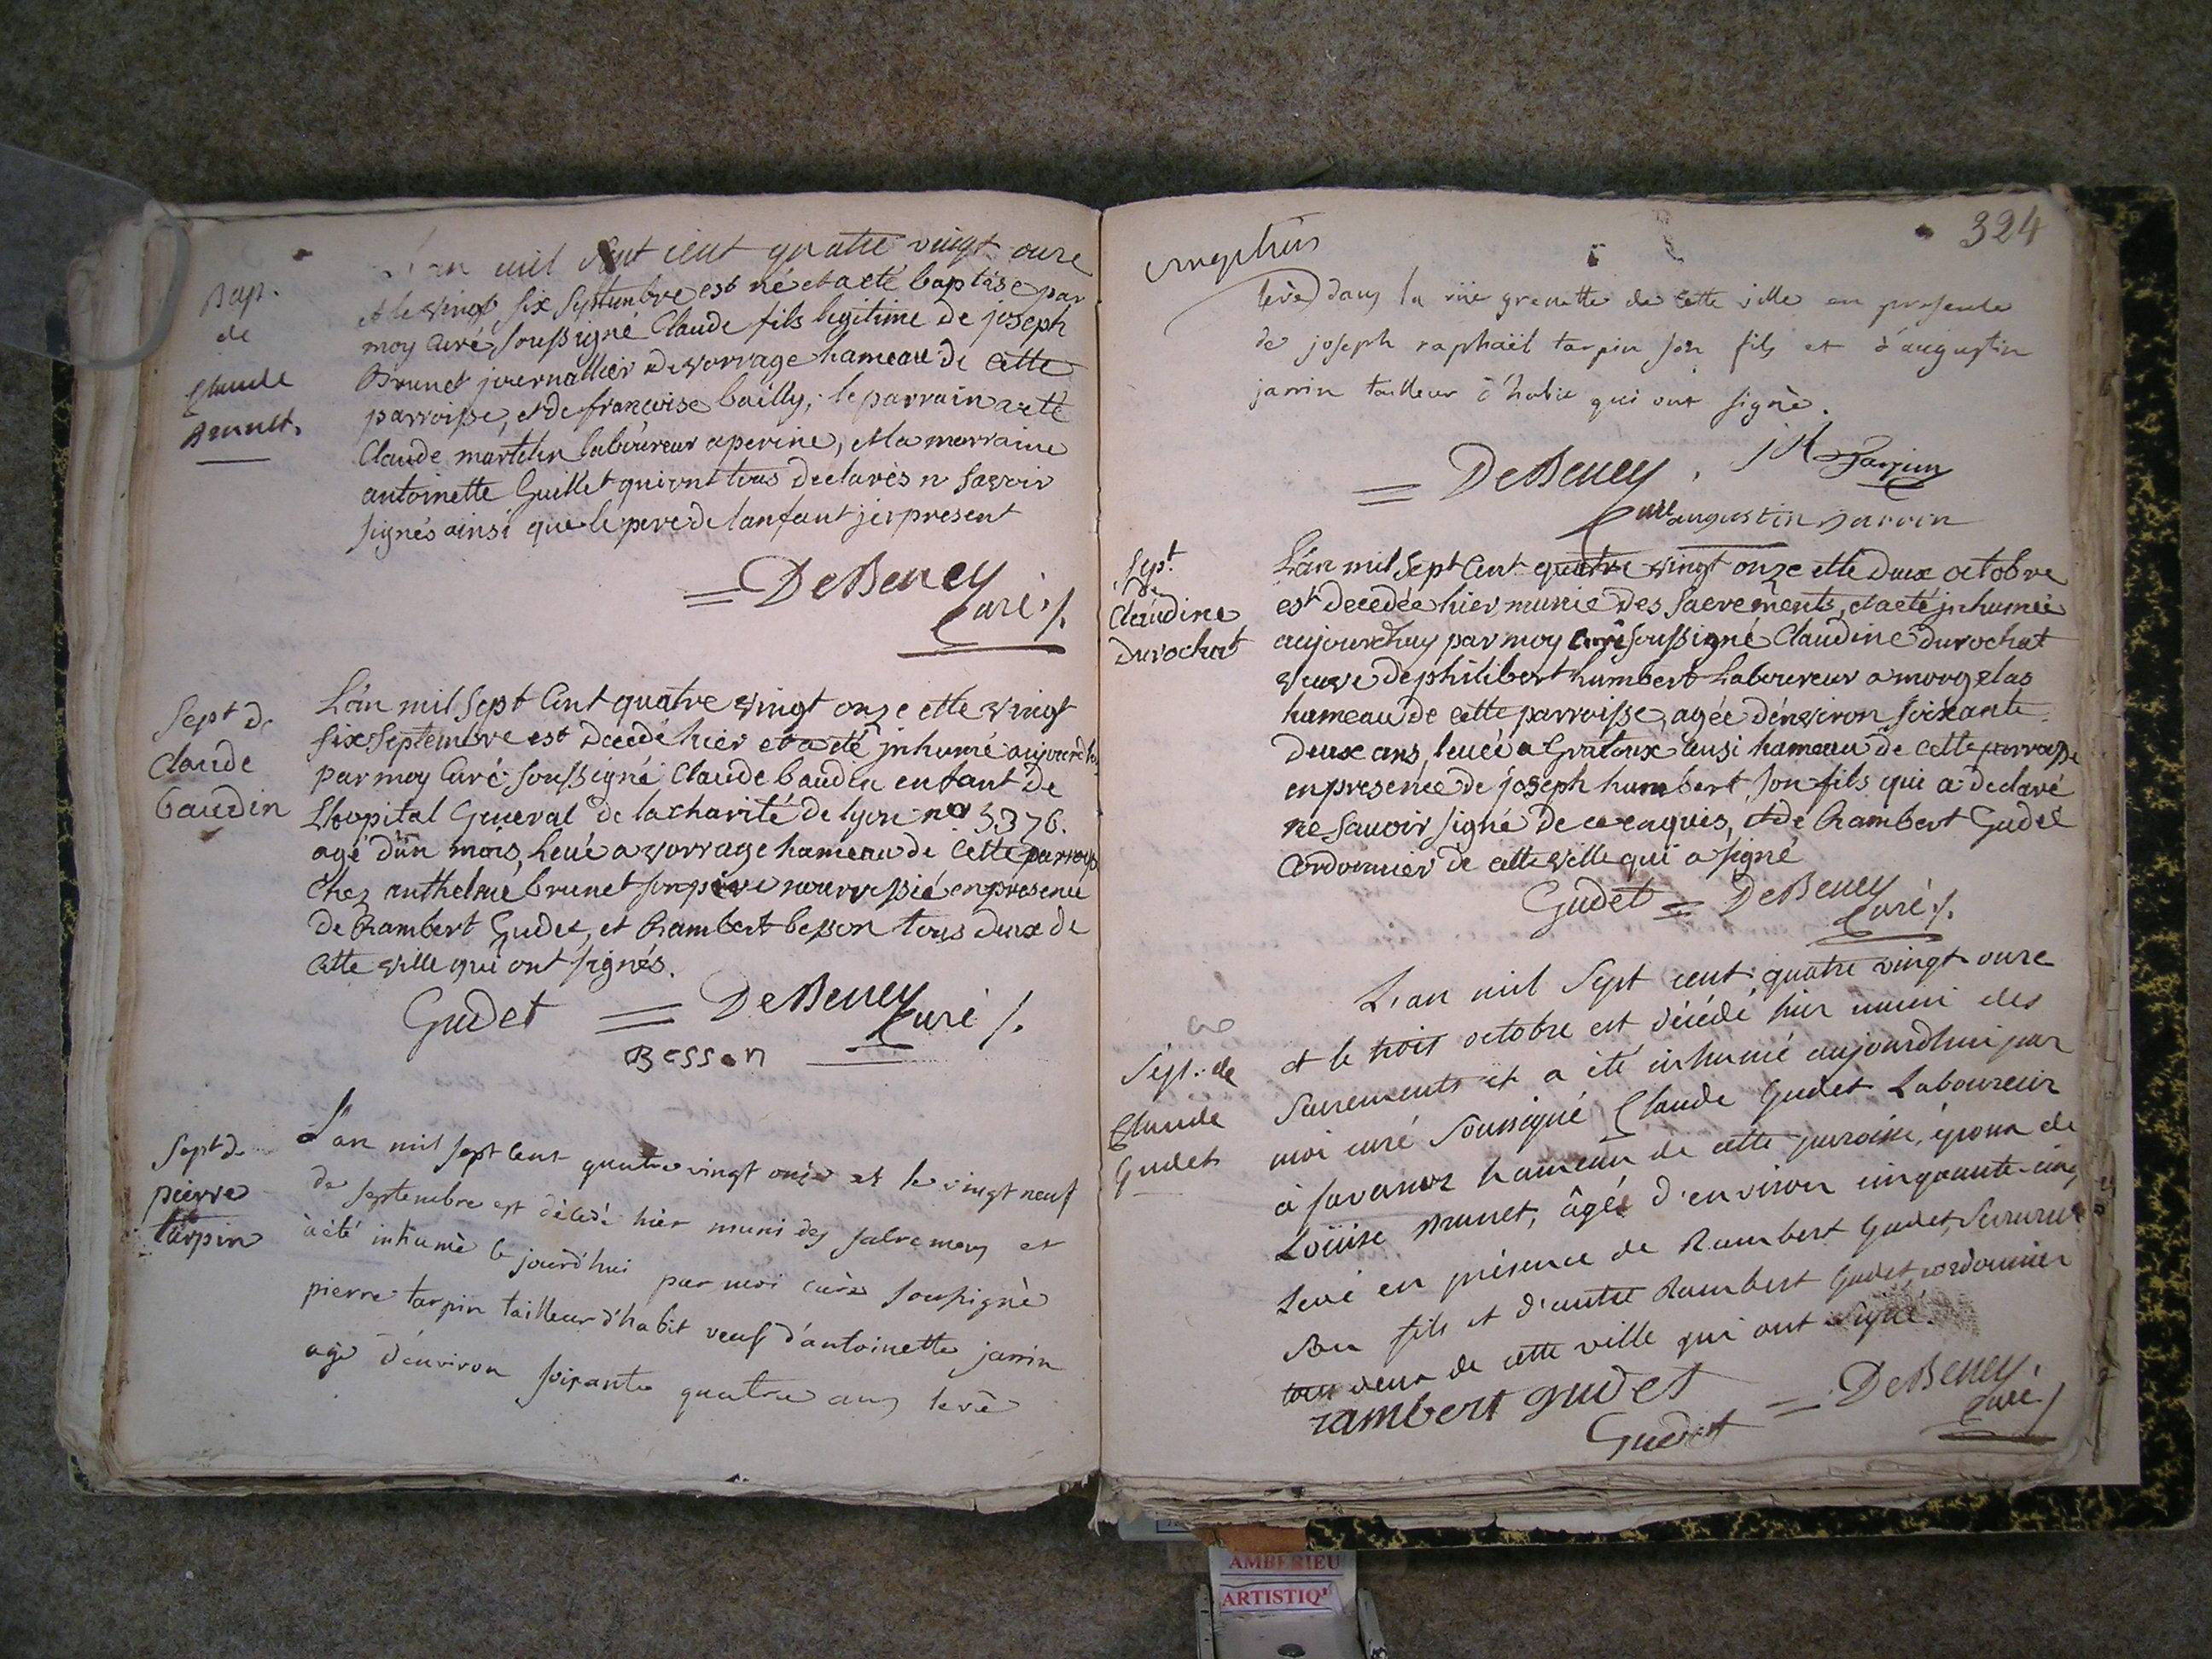 Bap.
de
Claude
Brunet.
L'an mil sept cent quatre vingt onze
et le vingt six Septembre est né et a eté baptisé par
moy Curé soussigné Claude fils legitime de joseph
Brunet journallier de vorrage hameau de Cette
parroisse, et de françoise bailly, le parrain a eté
Claude martelin laboureur a perine, et la marraine
antoinette Guillet qui ont tous declarés n savoir
signés ainsi que le pere de lanfant jci present
= DeBeney
Curé ./.
Sept de
Claude
baudin
L'an mil Sept Cent quatre vingt onze et le vingt
six Septembre est decedé hier et a eté jnhumé aujourdh
par moy Curé soussigné Claude baudin enfant de
Lhopital General de la charité de lyon no 3376.
agé d'un mois, Levé a vorrage hameau de Cette parroiss
Chez anthelme brunet son pere nourrissié en presence
de Rambert Gudet, et Rambert besson tous deux de
Cette ville qui ont signés.
Gudet = DeBeney
Curé ./.
Besson
Sept de
pierre
tarpin
L'an mil sept Cent quatre vingt onze et le vingt neuf
de septembre est décédé hier muni des sacremens et
à été inhumé ce jourd'hui par moi curé soussigné
pierre tarpin tailleur d'habit veuf d'antoinette jarrin
agé d'environ soixante quatre ans levé
324
levé dans la rüe grenette de cette ville en presence
de joseph raphaël tarpin son fils et d'augustin
jarrin tailleur d'habit qui ont signé.
= DeBeney. JR Tarpin
Curé augustin jarrin
Sept.
De
Claudine
Durochat
L'an mil Sept Cent quatre vingt onze et le Deux octobre
est decedée hier, munie des Sacrements, et a eté jnhumée
aujourdhuy par moy Curé soussigné Claudine Durochat
veuve de philibert humbert Laboureur a morgelas
hameau de cette parroisse, agée d'environ soixante
deux ans, levée a Gratoux ausi hameau de cette parroisse
en presence de joseph humbert, son fils qui a declaré
ne savoir signé de ce enquis, et de Rambert Gudet
Cordonnier de cette ville qui a signé
Gudet = DeBeney
Curé ./.
Sept. de
Claude
Gudet
L'an mil Sept cent quatre vingt onze
et le trois octobre est décédé hier muni des
Sacrements et a été inhumé aujourdhui par
moi curé Soussigné Claude Gudet Laboureur
à hameau de cette paroisse, époux de
Loüise Brunet, âgé d'environ cinquante-cinq
Levé en présence de Rambert Gudet, Serrurier
Son fils et d'autre Rambert Gudet, cordonnier
tous deux de cette ville qui ont Signé.
rambert gudet = DeBeney.
Gudet Curé ./
AMBERIEU
ARTISTIQ